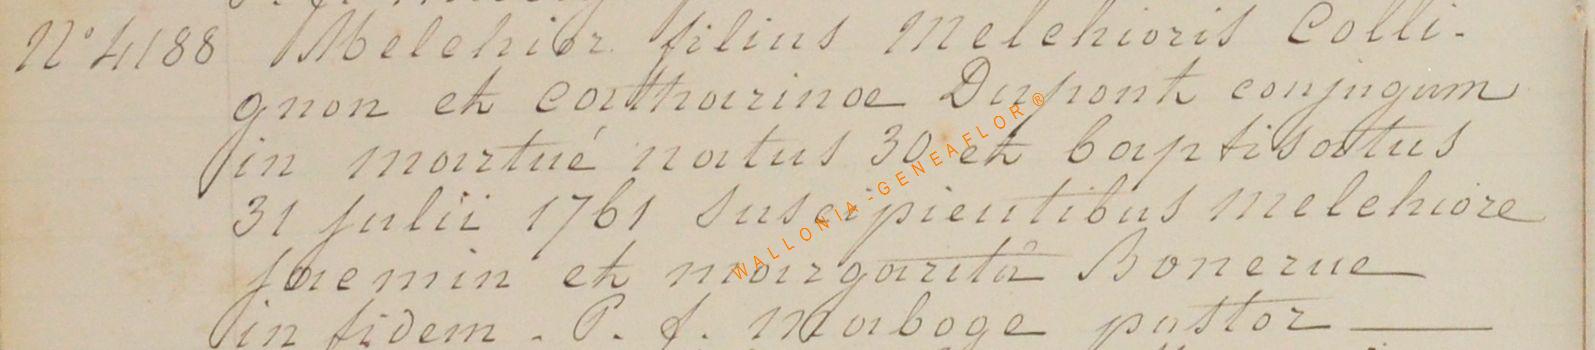 N° 4188 Melchior filius Melchioris Colli-
gnon et Catharinae Dupont conjugum
in martué natus 30 et baptisatus
31 julii 1761 suscipientibus melchiore
jaemin et margaritâ Bonerue
in fidem. P. J. Maboge pastor
WALLONIA-GENEAFLOR®